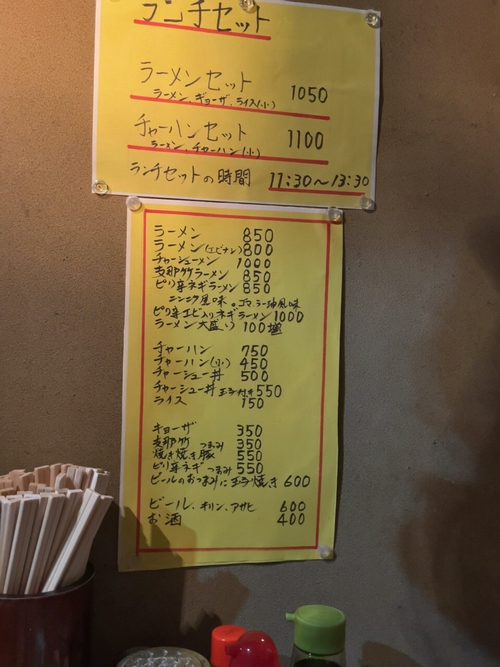 ランチセット
ラーメンセット 1050
ラーメン、ギョーザ、ライス(小)
チャーハンセット 1100
ラーメン、チャーハン(小)
ランチセットの時間 11:30〜13:30
ラーメン 850
ラーメン(エビナシ) 800
チャーシューメン 1000
支那竹ラーメン 850
ピリ辛ネギラーメン 850
ニンニク風味。ゴマラー油風味
ピリ辛エビ入りネギラーメン 1000
ラーメン大盛り 100増
チャーハン 750
チャーハン(小) 450
チャーシュー丼 500
チャーシュー丼 玉子付き 550
ライス 150
キョーザ 350
支那竹 つまみ 350
焼き焼き豚 550
ピリ辛ネギつまみ 550
ビールのおつまみに玉子焼き 600
ビール、キリン、アサヒ 600
お酒 400